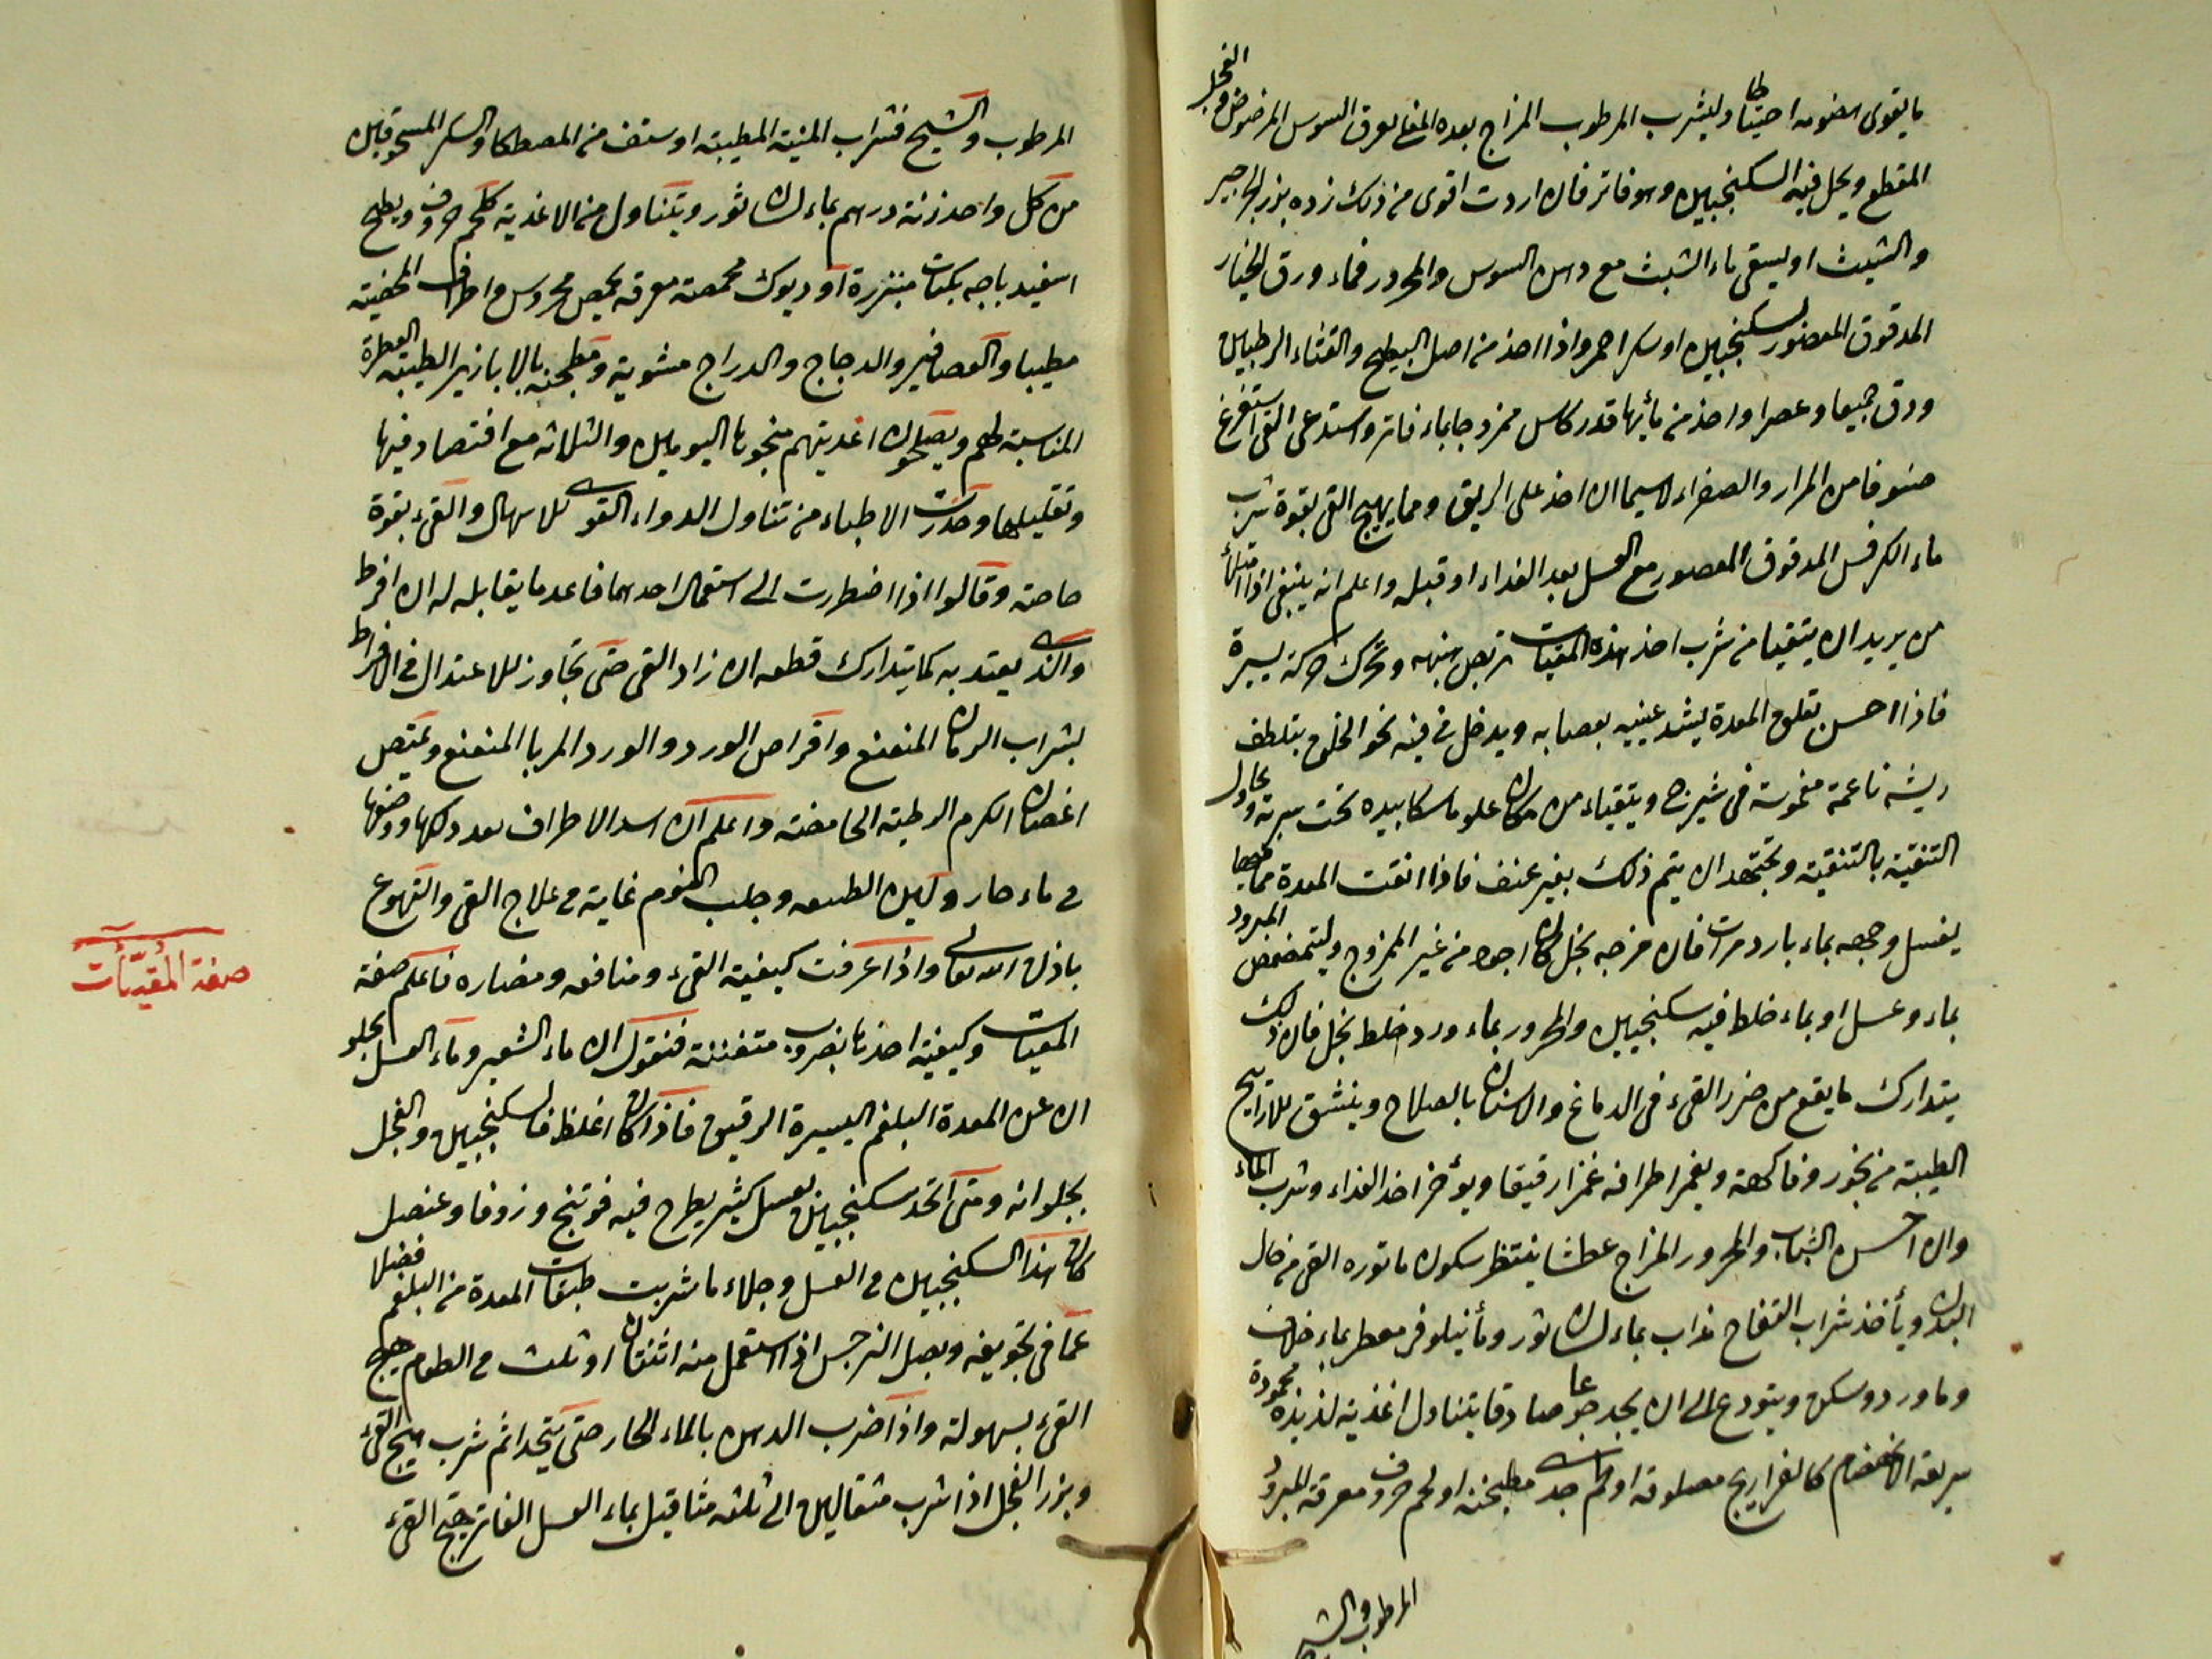 ما يقوى هضومه احتياطا وليشرب المرطوب المزاج بعده المغلى عرق السوس المرضوض والفجل
المقطع ويحل فيه السكنجبين وهو فاتر فان اردت اقوى من ذلك زده بزر الجرجير
والشبث او يسقى ماء الشبث مع دهن السوس والمحرور فماء ورق الخيار
المدقوق المعصور بسكنجبين او سكر احمر واذا اخذ من اصل البطيخ والقثاء الرطبين
ودق جميعا وعصرا واخذ من مأيها قدر كاس ممزوجا بماء فاتر واستدعى القى استفرغ
صنوفا من المرار والصفراء لاسيما ان اخذ على الريق ومما يهيج القى بقوة شرب
ماء الكرفس المدقوق المعصور مع العسل بعد الغداء او قبله واعلم انه ينبغى اذا امتلأ
من يريد ان يتقيا من شرب احد هذه المقيات ترتجل بنهه وتحرك حركة يسيرة
فاذا احسن بقلوق المعدة ليشد عينيه بعصابه ويدخل فى فيه نحو الحلق بتلطف
ريشه ناعمة مغموسة فى شيرج ويتقياء من مكان علو ماسكا بيده تحت سرته ويحاول
التنقية بالتنقية ويجتهد ان يتم ذلك بغير عنف فاذا انقت المعدة مما فيها
يغسل وجهه بماء بارد مرات فان مزجه بخل كان اجود من غير الممزوج وليتمضمض المبرود
بماء وعسل او بماء خلط فيه سكنجبين والمحرور بماء ورد خلط بخل فان ذلك
يتدارك ما يقع من ضرر القىء فى الدماغ والاسنان بالصلاح وينشق للارايح
الطيبة من بخور وفاكهة ويغمز اطرافه غمزا رقيقا ويؤخر اخذ الغداء وشرب الماء
وان احسن الشباب والمحرور المزاج عطشا ينتظر سكون ما ثوره القى من حال
البدن ويأخذ شراب التفاح مذاب بماء لسان ثور ومأ نيلوفر معطر بماء خلاف
وماورد وسكن ويتودع الى ان يجد جوعا صادقا يتناول اغذية لذيذة محمودة
سريعة الانهضام كالفراريج مصلوقة او لحم جدى مطجنه او لحم خروف معرقه للمبرود
المرطوب والشيخ
المرطوب والشيخ فشراب الميبة المطيبة او سنف من المصطكا والسكر المسحوقين
من كل واحد زنة درهم بماء لسان ثور ويتناول من الاغذية كلحم خروف ويطبخ
اسفيدباجه بكمات مبزرة او ديوك محمصة معرقه بحمص مجروس واطراف المحصية
مطيبا والعصافير والدجاج والدراج مشوية ومطجنه بالابازير الطيبة العطرة
المناسبة لهم ويصلحون اغديتهم بنحوها اليومين والثلاثه مع اقتصاد فيها
وتقليلها وحذرت الاطباء من تناول الدواء القوى للاسهال والقىء بقوة
خاصة وقالوا اذا اضطررت الى استعمال احدهما فاعد ما يقابله له ان افرط
والذى يعتد به كما يتدارك قطعه ان زاد القى حتى تجاوز للاعتدال فى الافراط
بشراب الرمان المنعنع واقراص الورد والورد المربا المنعنع ويمتص
اغصان الكرم الرطبة الحامضة واعلم ان اسد الاطراف بعد دلكها ووضعها
فى ماء حار ولين الطبيعه وجلب النوم غاية فى علاج القى والتهوع
باذن الله تعالى واذا عرفت كيفية القىء ومنافعه ومضاره فاعلم صفة
المقيات وكيفية اخذها بضروب متفننة فنقول ان ماء الشعير وماء العسل يجلو
ان عن المعدة البلغم اليسيرة الرقيق فاذا كان اغلظ فالسكنجبين والفجل
يجلوانه ومتى اتخد سكنجبين بعسل كثير يطرح فيه فوتنج وزوفا وعنصل
كان هذا السكنجبين فى الغسل وجلاء ما شربت طبقات المعدة من البلغم فضلا
عما فى تجويفه وبصل النرجس اذا استعمل منه اثنتان او ثلث فى الطعام هيج
القىء بسهولة واذا ضرب الدهن بالماء الحار حتى يتحدا ثم شرب هيج القىء
وبزر الفجل اذا شرب مثقالين الى ثلثه مثاقيل بماء العسل الفاتر هيج القىء
صفة المقيّأت